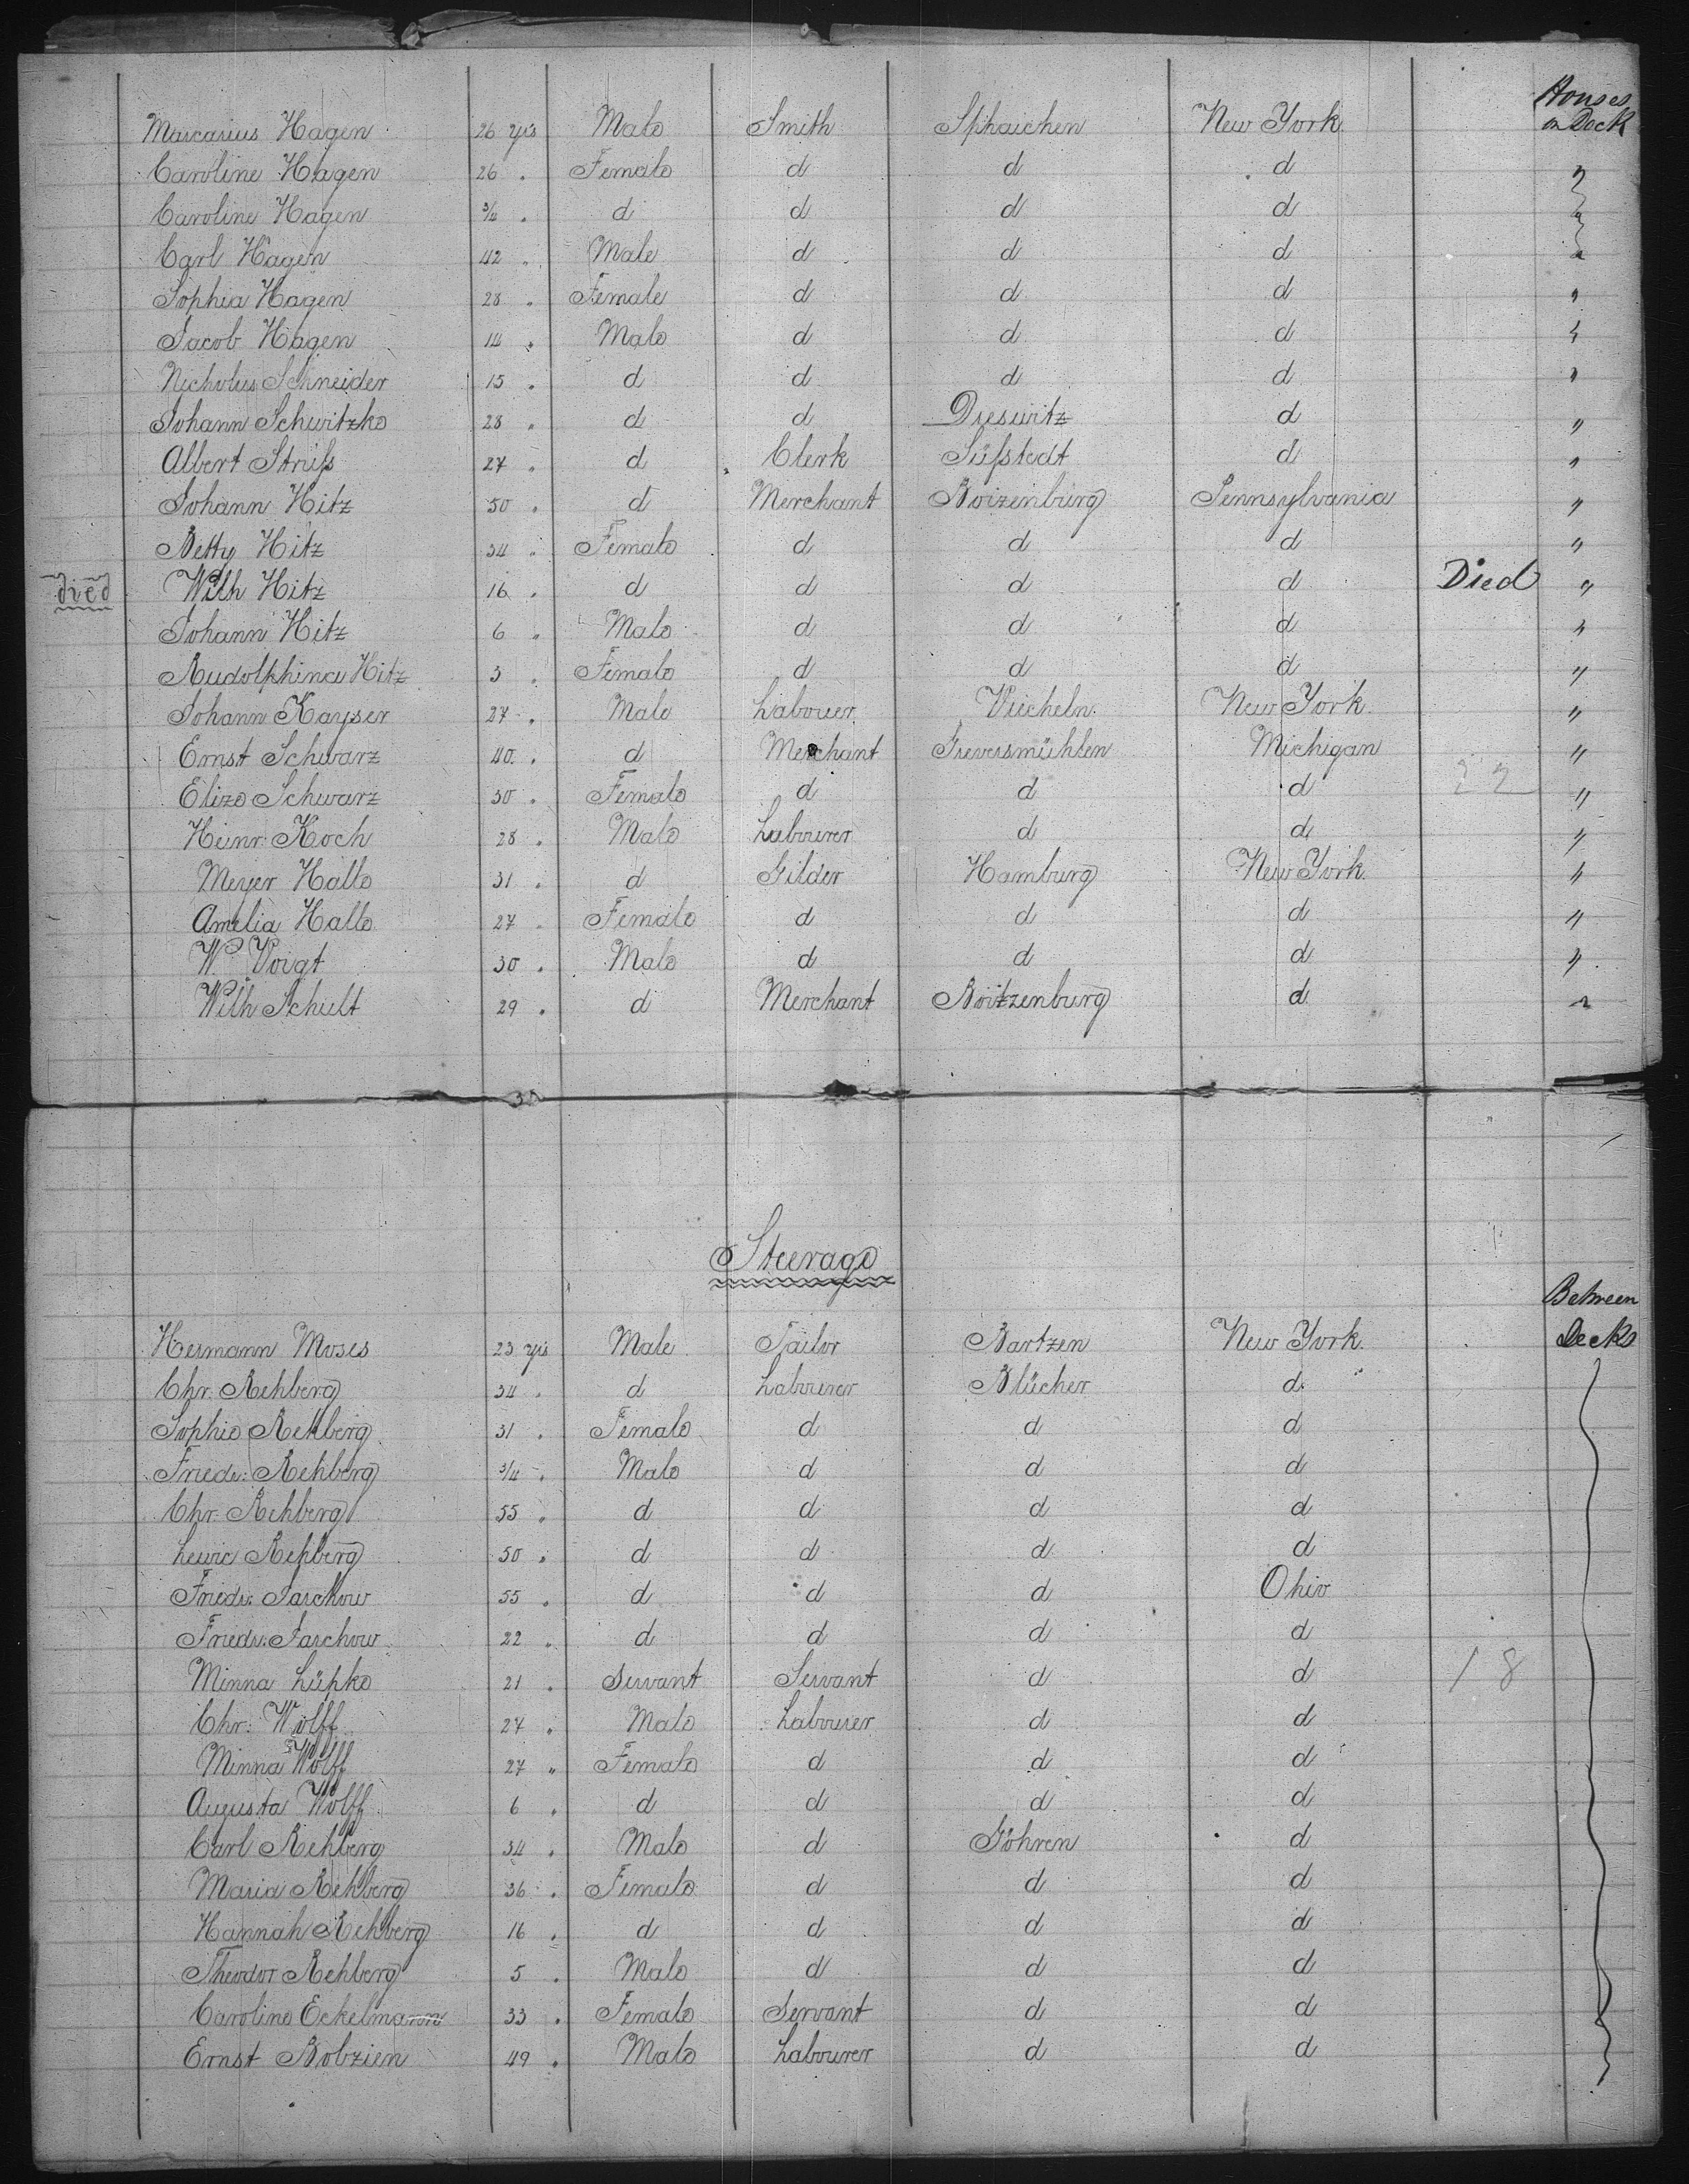 Houses
on Deck
Marcarius Hagen 26 yrs Male Smith Sphaichen New York
Caroline Hagen 26 " Female d d d "
Caroline Hagen 3/4 " d d d d "
Carl Hagen 42 " Male d d d "
Sophia Hagen 28 " Female d d d "
Jacob Hagen 14 " Male d d d "
Nicholus Schneider 15 " d d d d "
Johann Schwitzke 28 " d d Dreswitz d "
Albert Struß 27 " d Clerk Süßstedt d "
Johann Hitz 50 " d Merchant Boizenburg Pennsylvania "
Betty Hitz 34 " Female d d d "
died Wilh Hitz 16 " d d d d Died "
Johann Hitz 6 " Male d d d "
Rudolphina Hitz 3 " Female d d d "
Johann Kayser 27 " Male Labouer Viecheln New York "
Ernst Schwarz 40 " d Merchant Greversmühlen Michigan "
Elize Schwarz 30 " Female d d d 22 "
Heinr: Koch 28 " Male Labourer d d "
Meyer Halle 31 " d Gilder Hamburg New York "
Amelia Halle 27 " Female d d d "
W. Voigt 30 " Male d d d "
Wilh Schult 29 " d Merchant Boitzenburg d "
Steerage
Between
Decks
Hermann Moses 23 yrs Male Tailor Bartzen New York
Chr. Rehberg 34 " d Labourer Blücher d
Sophie Rehberg 31 " Female d d d
Friedr: Rehberg 3/4 " Male d d d
Chr. Rehberg 55 " d d d d
Lewic Rehberg 50 " d d d d
Friedr: Jaschow 55 " d d d Ohio
Friedr: Jaschow 22 " d d d d
Minna Lüpke 21 " Servant Servant d d 18
Chr: Wolff 27 " Male Labourer d d
Minna Wolff 27 " Female d d d
Augusta Wolff 6 " d d d d
Carl Rehberg 34 " Male d Göhren d
Maria Rehberg 36 " Female d d d
Hannah Rehberg 16 " d d d d
Theodor Rehberg 5 " Male d d d
Caroline Eckelmann 33 " Female Servant d d
Ernst Bobzien 49 " Male Labourer d d